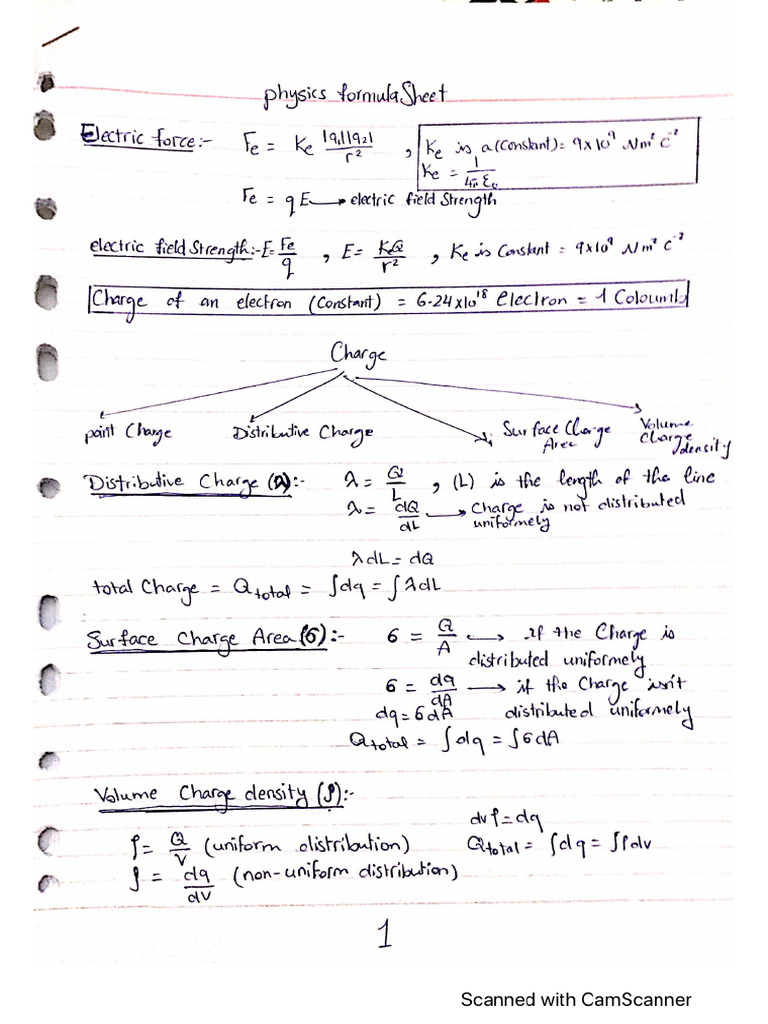 physics formula Sheet
Electric force:- Fe = Ke |q1||q2| / r² , Ke is a (Constant) = 9x10⁹ Nm² C⁻²
Ke = 1 / 4π ε₀
Fe = q E → electric field Strength
electric field Strength:- E = Fe / q , E = KQ / r² , Ke is Constant = 9x10⁹ Nm² C⁻²
Charge of an electron (Constant) = 6.24x10¹⁸ electron = 1 Coloumb
Charge
point Charge Distributive Charge Surface Charge Area Volume Charge density
Distributive Charge (λ):- λ = Q / L , (L) is the length of the line
λ = dQ / dL → Charge is not distributed uniformely
λdL = dQ
total Charge = Q total = ∫dq = ∫λdL
Surface Charge Area (6):- 6 = Q / A → if the Charge is distributed uniformely
6 = dq / dA → if the Charge isn't distributed uniformely
dq = 6dA
Q total = ∫dq = ∫6dA
Volume Charge density (ρ):-
dvρ = dq
ρ = Q / V (uniform distribution) Q total = ∫dq = ∫ρdv
ρ = dq / dv (non-uniform distribution)
1
Scanned with CamScanner